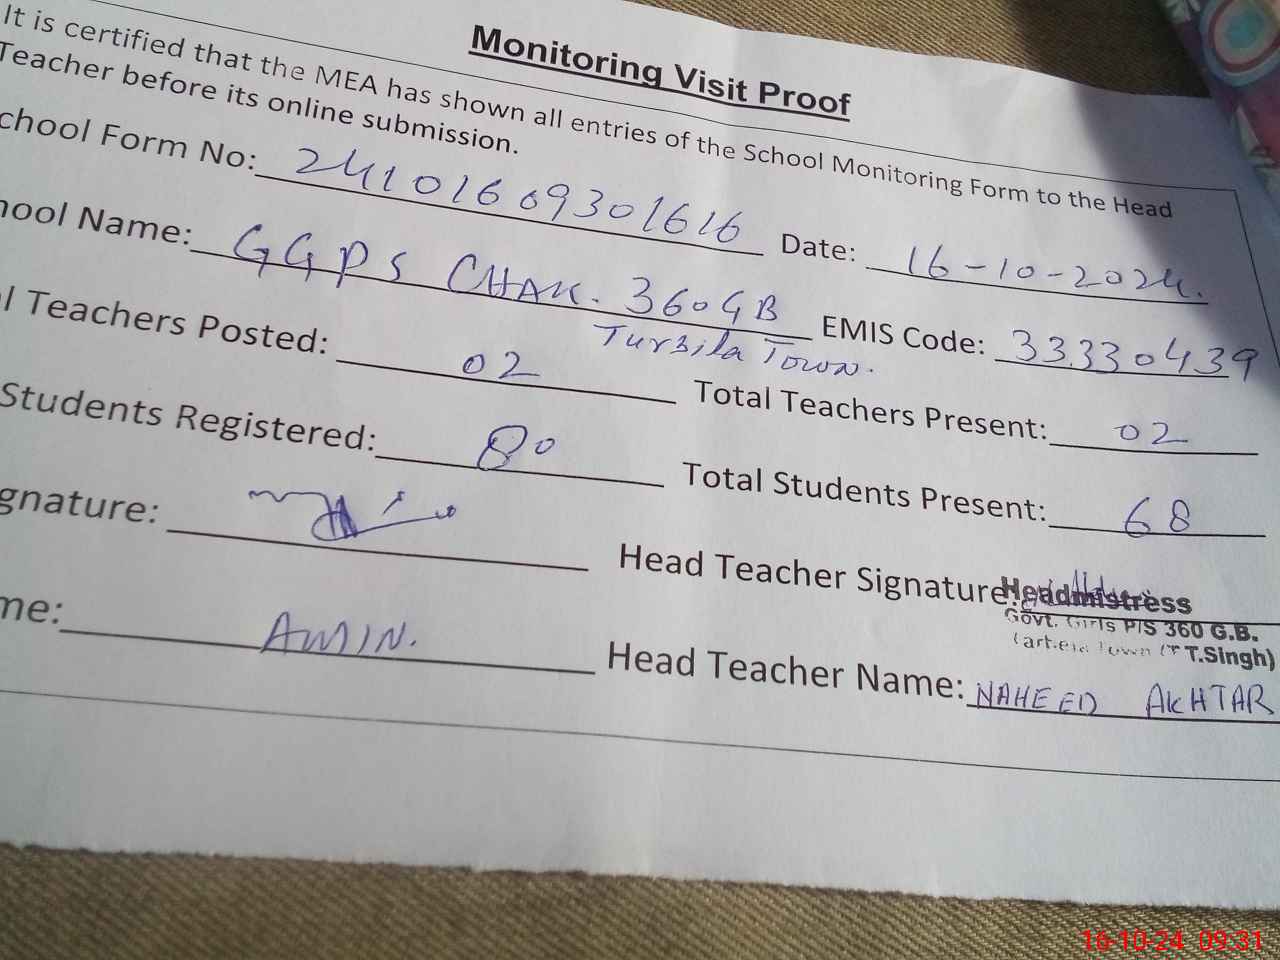 Monitoring Visit Proof
It is certified that the MEA has shown all entries of the School Monitoring Form to the Head
Teacher before its online submission.
chool Form No: 24101609301616 Date: 16-10-2024.
hool Name: GGPS CHAK. 360GB EMIS Code: 33330439
Town.
l Teachers Posted: 02 Total Teachers Present: 02
Students Registered: 80 Total Students Present: 68
gnature: Head Teacher Signature:
Headmistress
Govt. Girls P/S 360 G.B.
T.Singh)
me: AMIN. Head Teacher Name: NAHEED AKHTAR
16-10-24 09:31